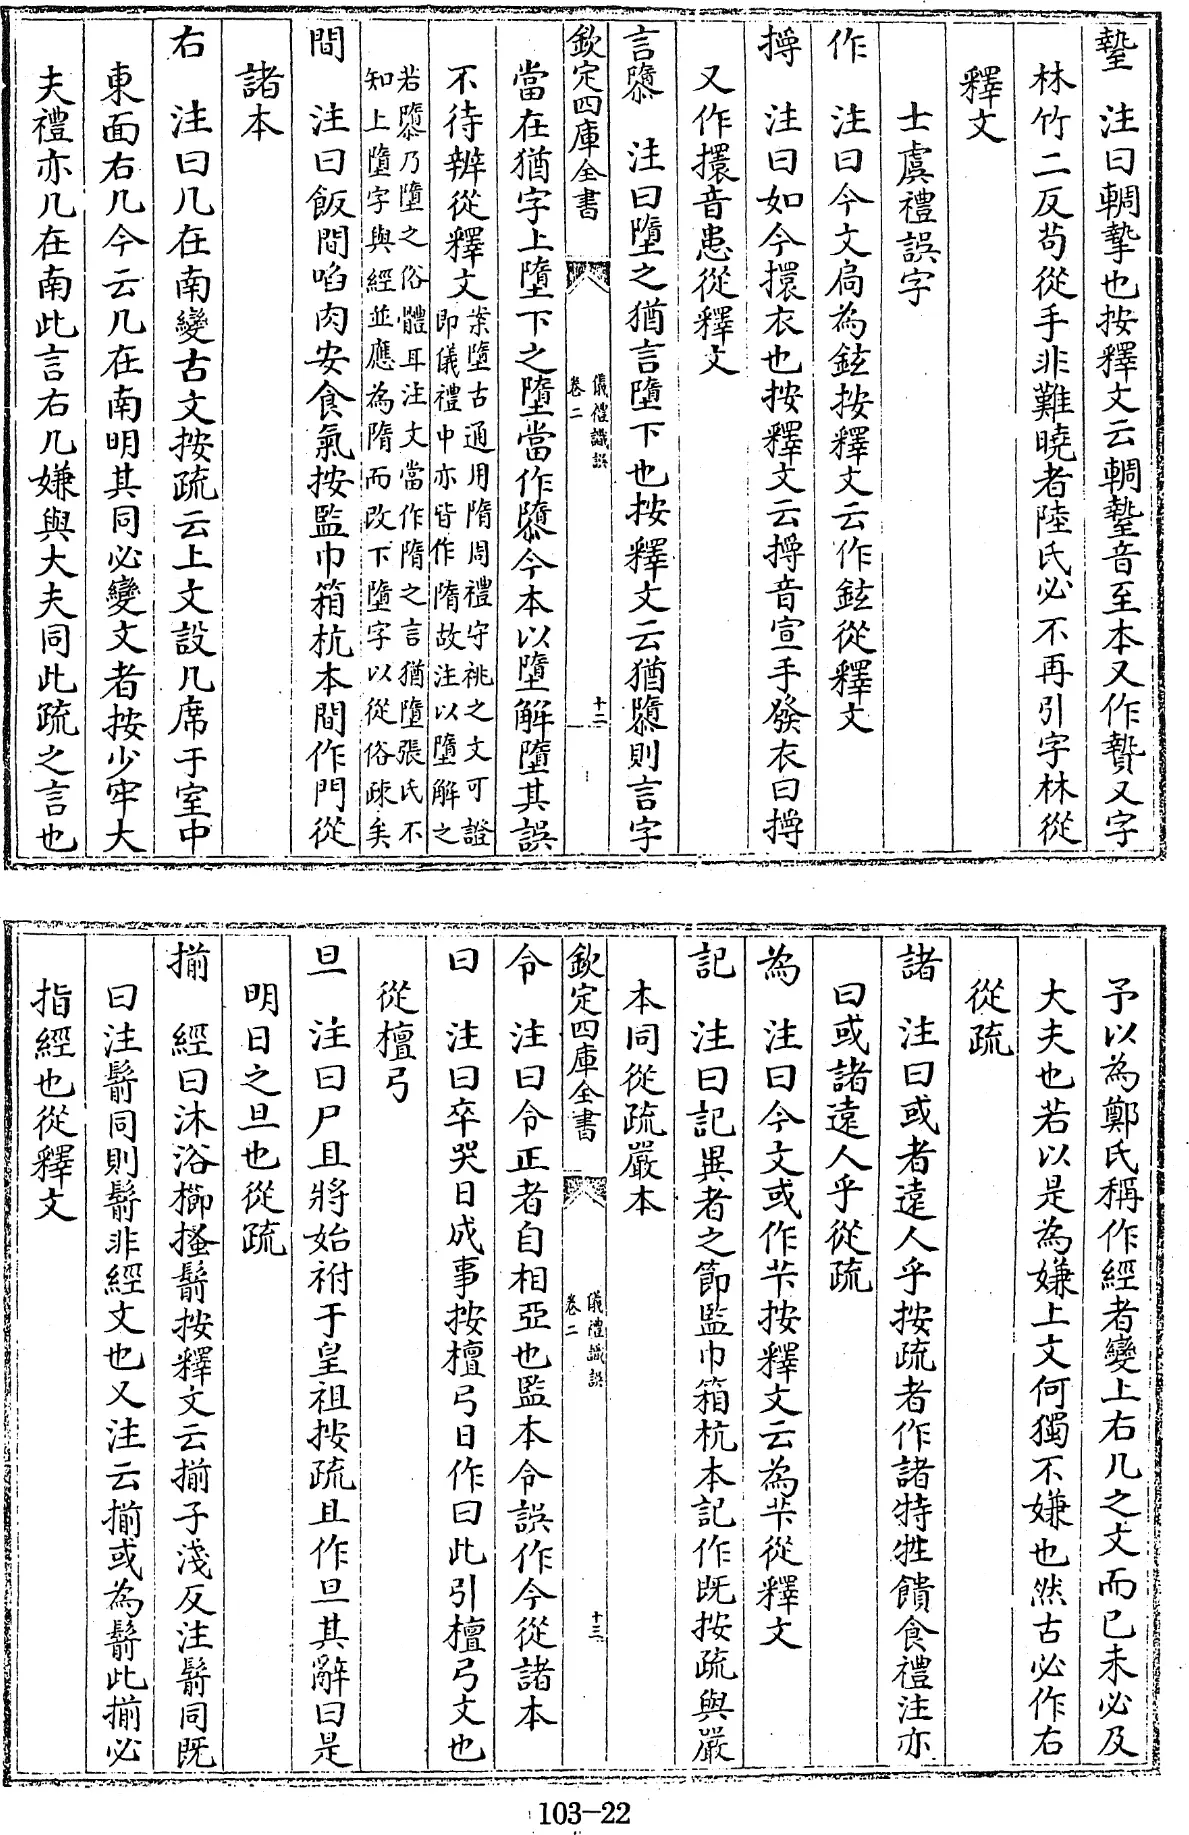 䡹　注曰輖摯也按釋文云輖䡹音至本又作贄又字
林竹二反苟從手非難曉者陸氏必不再引字林從
釋文
士虞禮誤字
作　注曰今文扃為鉉按釋文云作鉉從釋文
撙　注曰如今擐衣也按釋文云撙音宣手發衣曰撙
又作擐音患從釋文
言隳　注曰墮之猶言墮下也按釋文云猶隳則言字
欽定四庫全書
儀禮識誤
卷二
十二
當在猶字上墮下之墮當作隳今本以墮解墮其誤
不待辨從釋文案墮古通用隋周禮守祧之文可證
即儀禮中亦皆作隋故注以墮解之
若隳乃墮之俗體耳注文當作隋之言猶墮張氏不
知上墮字與經並應為隋而改下墮字以從俗疎矣
間　注曰飯間啗肉安食氣按監巾箱杭本間作門從
諸本
右　注曰几在南變古文按疏云上文設几席于室中
東面右几今云几在南明其同必變文者按少牢大
夫禮亦几在南此言右几嫌與大夫同此疏之言也
予以為鄭氏稱作經者變上右几之文而已未必及
大夫也若以是為嫌上文何獨不嫌也然古必作右
從疏
諸　注曰或者遠人乎按疏者作諸特牲饋食禮注亦
曰或諸遠人乎從疏
為　注曰今文或作芐按釋文云為芐從釋文
記　注曰記異者之節監巾箱杭本記作既按疏與嚴
本同從疏嚴本
欽定四庫全書
儀禮識誤
卷二
十三
令　注曰令正者自相亞也監本令誤作今從諸本
曰　注曰卒哭日成事按檀弓日作曰此引檀弓文也
從檀弓
旦　注曰尸且將始祔于皇祖按疏且作旦其辭曰是
明日之旦也從疏
揃　經曰沐浴櫛搔鬋按釋文云揃子淺反注鬋同既
曰注鬋同則鬋非經文也又注云揃或為鬋此揃必
指經也從釋文
103-22